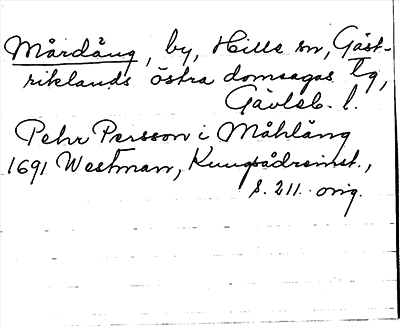 Mårdång, by, Hille sn, Gäst-
riklands östra domsagas lg,
Gävleb. l.
Pehr Persson i Måhlång
1691 Westman, Kungsådreinst.,
s. 211. orig.